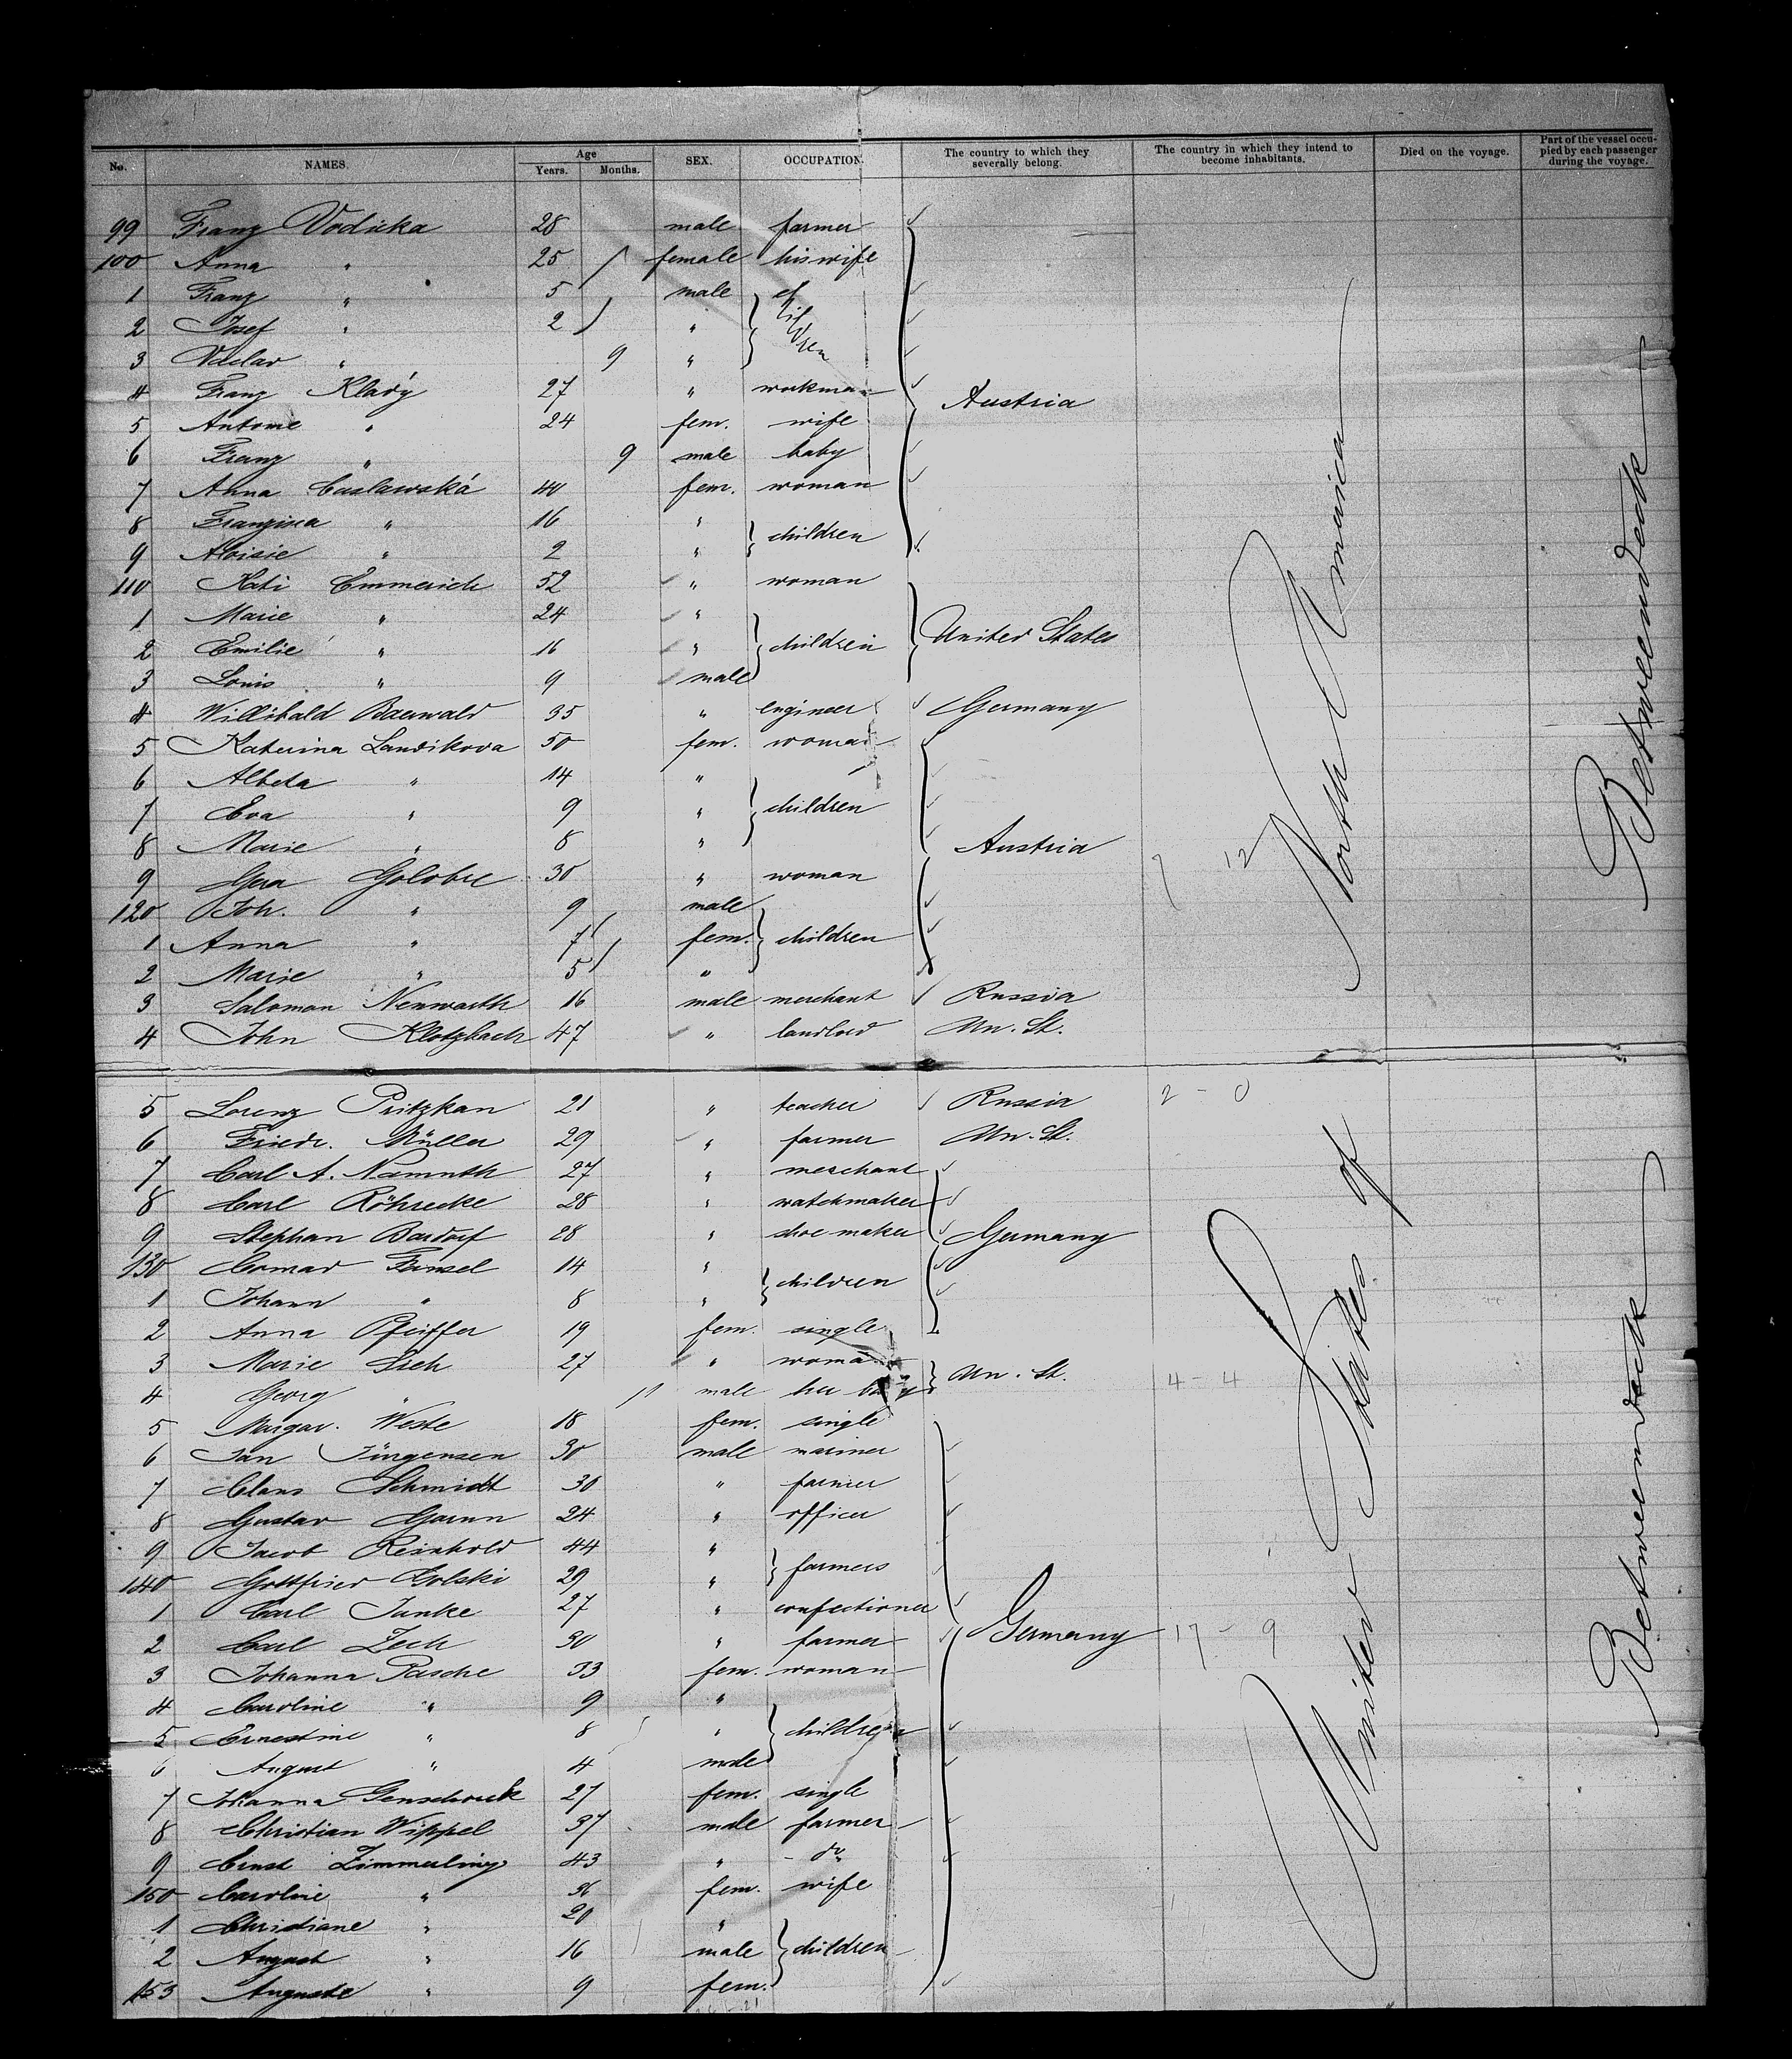 No. NAMES. Age Years. Months. SEX. OCCUPATION. The country to which they severally belong. The country in which they intend to become inhabitants. Died on the voyage. Part of the vessel occupied by each passenger during the voyage.
99 Franz Vodicka 28 male farmer
100 Anna " 25 female his wife
1 Franz " 5 male children
2 Josef " 2 "
3 Vaclav " 9 "
4 Franz Klady 27 " workman Austria
5 Antonie " 24 fem. wife
6 Franz " 9 male baby
7 Anna Caslawská 40 fem. woman
8 Franziska " 16 " children
9 Aloisie " 2 "
110 Kati Emmerich 52 " woman
1 Marie " 24 "
2 Emilie " 16 " children United States
3 Louis " 9 male
4 Willibald Baerwald 35 " engineer Germany
5 Katerina Landikova 50 fem. woman
6 Albeta " 14 "
7 Eva " 9 " children
8 Marie " 8 " Austria
9 Gera Golobic 30 " woman
120 Joh. " 9 male
1 Anna " 7 fem. children
2 Marie " 5 "
3 Salomon Nenwarth 16 male merchant Russia
4 John Klotzbach 47 " landlord Un. St.
5 Lorenz Pritzkan 21 " teacher Russia 2 - 0
6 Friedr. Müller 29 " farmer Un. St.
7 Carl A. Namnth 27 " merchant
8 Carl Röhrecke 28 " watchmaker
9 Stephan Bardorf 28 " shoe maker Germany
130 Conrad Feinsel 14 " children
1 Johann " 8 "
2 Anna Pfeiffer 19 fem. single
3 Marie Sieh 27 " woman Un. St.
4 Georg " 11 male her baby 4 - 4
5 Margar. Weste 18 fem. single
6 Jan Jürgensen 30 male mariner
7 Claus Schmidt 30 " farmer
8 Gustav Garnn 24 " officer
9 Jacob Reinhold 44 " farmers
140 Gottfried Golski 29 "
1 Carl Junke 27 " confectioner
2 Carl Zech 30 " farmer Germany 17 - 9
3 Johanna Pasche 33 fem. woman
4 Caroline " 9 "
5 Ernestine " 8 " children
6 August " 4 male
7 Johanna Genschouk 27 fem. single
8 Christian Wippel 37 male farmer
9 Ernst Zimmerling 43 " do
150 Caroline " 36 fem. wife
1 Christiane " 20 "
2 August " 16 male children
153 Auguste " 9 fem.
United States of North America
12
Betweendeck
Betweendeck